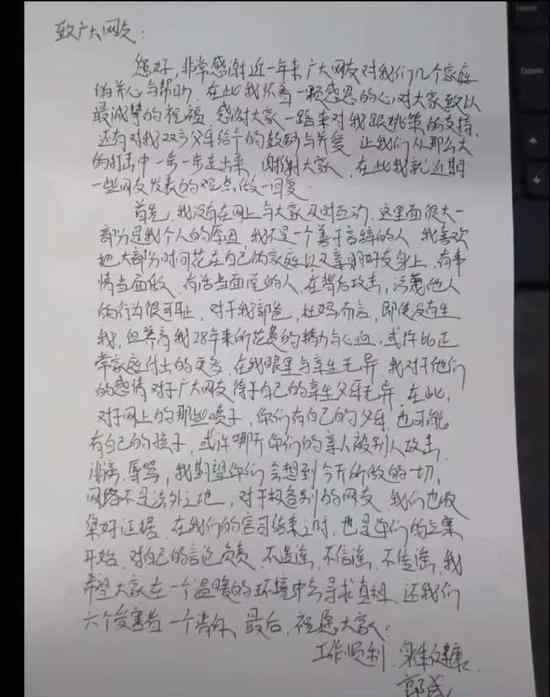 致广大网友:
您好,非常感谢近一年来广大网友对我们几个家庭
的关心与帮助,在此我怀着一颗感恩的心对大家致以
最诚挚的祝福,感谢大家一路来对我跟姚策的支持,
还有对我双方父母给予的鼓励与关爱,让我们从那么大
的打击中一步一步走出来,谢谢大家,在此我就近期
一些网友发表的观点,做一回复。
首先,我没有在网上与大家及时互动,这里面很大一
部分是我个人的原因,我不是一个善于言辞的人,我喜欢
把大部分时间花在自己的家庭以及亲朋好友身上,有事
情当面做,有话当面说的人,在背后攻击,污蔑他人
的行为很可耻,对于我郭爸,杜妈而言,即使没有生
我,但养育我28年来所花费的精力与心血,或许比正
常家庭付出的更多,在我眼里与亲生无异,我对于他们
的感情对于广大网友待于自己的亲生父母无异,在此,
对于网上的那些喷子,你们有自己的父母,也可能
有自己的孩子,或许哪天你们的亲人被别人攻击,
谩骂,辱骂,我期望你们会想到今天所做的一切,
网络不是法外之地,对于极各别的网友,我们也收
集好证据,在我们的官司结束之时,也是你们的立案
开始,对自己的言论负责,不造谣,不信谣,不传谣,我
希望大家在一个温暖的环境中去寻求真相,还我们
六个受害者一个清白,最后,祝愿大家:
工作顺利,身体健康
郭威